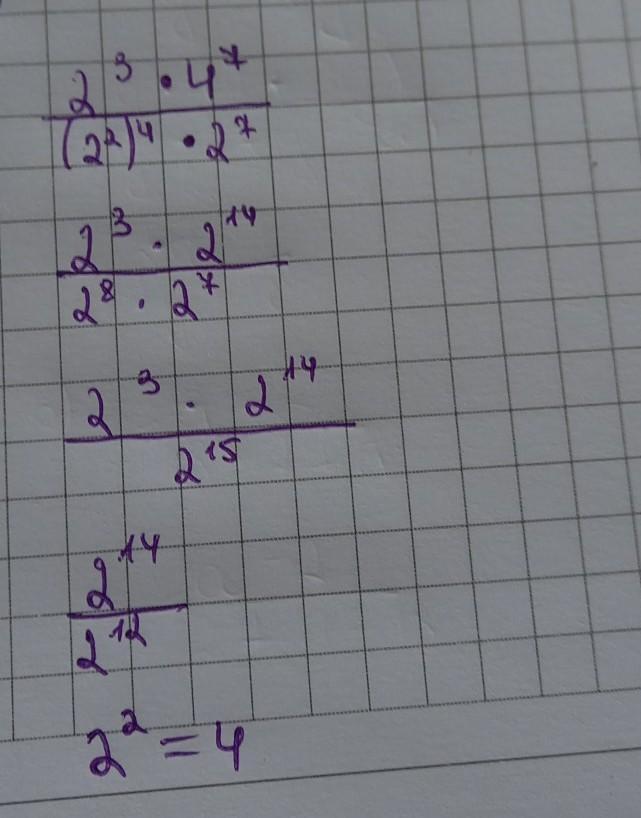 2³ · 4⁷
(2²)⁴ · 2⁷
2³ · 2¹⁴
2⁸ · 2⁷
2³ · 2¹⁴
2¹⁵
2¹⁴
2¹²
2² = 4